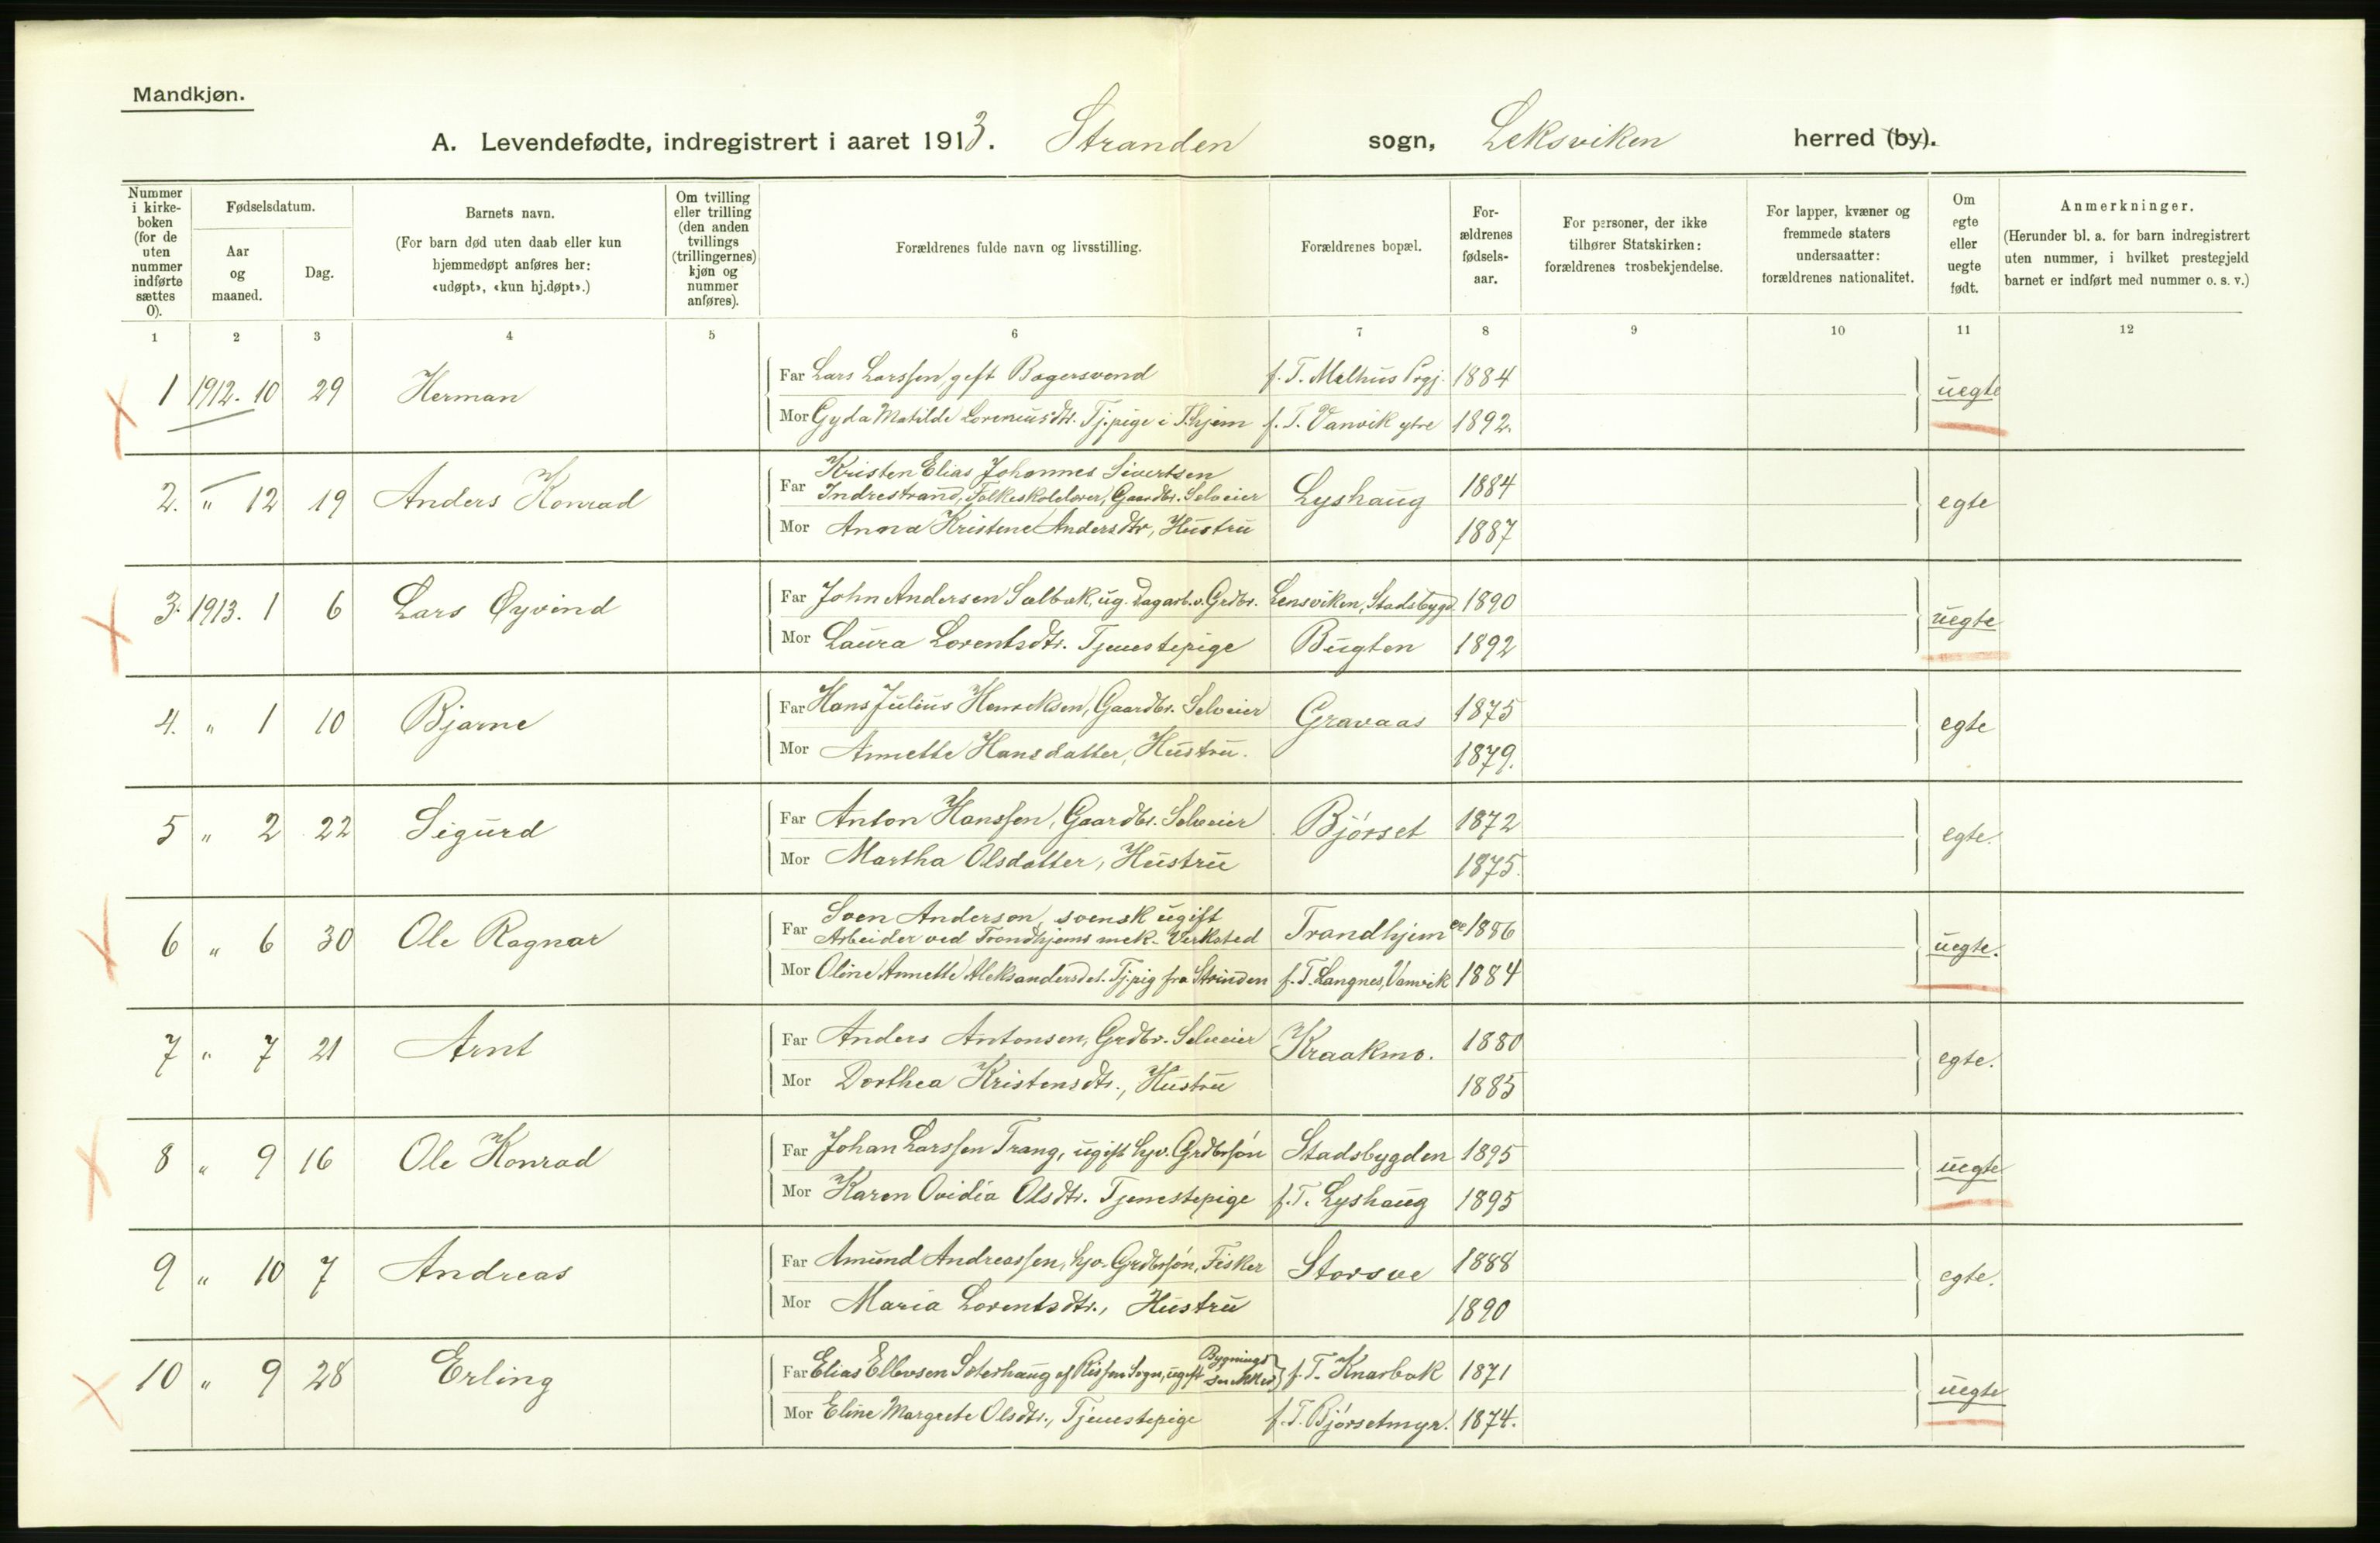 Mandkjøn.
A. Levendefødte, indregistrert i aaret 1913. Stranden sogn, Leksviken herred (by).
Nummer i kirke-boken (for de uten nummer indførte sættes 0).
Fødselsdatum.
Aar og maaned.
Dag.
Barnets navn.
(For barn død uten daab eller kun hjemmedøpt anføres her: «udøpt», «kun hj.døpt».)
Om tvilling eller trilling (den anden tvillings (trillingernes) kjøn og nummer anføres).
Forældrenes fulde navn og livsstilling.
Forældrenes bopæl.
For-ældrenes fødsels-aar.
For personer, der ikke tilhører Statskirken: forældrenes trosbekjendelse.
For lapper, kvæner og fremmede staters undersaatter: forældrenes nationalitet.
Om egte eller uegte født.
Anmerkninger.
(Herunder bl. a. for barn indregistrert uten nummer, i hvilket prestegjeld barnet er indført med nummer o. s. v.)
1 2 3 4 5 6 7 8 9 10 11 12
1 1912. 10 29 Herman Far Lars Larssen, gift Bagersvend f. T. Melhus Prgj. 1884 uegte
Mor Gyda Matilde Loreniusdtr. Tj.pige i T.hjem f. T. Vanvik ytre 1892.
2. " 12 19 Anders Konrad Far Kristen Elias Johannes Sivertsen
Indrestrand, Folkeskolelærer, Gaardbr. Selveier Lyshaug 1884 egte
Mor Anna Kristine Andersdtr, Hustru 1887
3. 1913. 1 6 Lars Øyvind Far John Andersen Sælbak, ug. Dagarb. v. Grdbr. Lensviken, Stadsbygd 1890 uegte
Mor Laura Lorentsdtr. Tjenestepige Bugten 1892
4. " 1 10 Bjarne Far Hans Julius Henriksen, Gaardbr. Selveier Gravaas 1875 egte
Mor Annette Hansdatter, Hustru. 1879.
5 " 2 22 Sigurd Far Anton Hanssen, Gaardbr. Selveier Bjørset 1872 egte.
Mor Martha Olsdatter, Hustru 1875.
6 " 6 30 Ole Ragnar Far Sven Anderson, svensk ugift
Arbeider ved Trondhjems mek. Verksted Trondhjem ca 1886 uegte.
Mor Oline Annette Aleksandersdat. Tj.pig fra Strinden f. T. Langnes, Vanvik 1884
7 " 7 21 Arnt Far Anders Antonsen, Grdbr. Selveier Kraakmo. 1880 egte.
Mor Dorthea Kristensdtr., Hustru 1885
8 " 9 16 Ole Konrad Far Johan Larssen Trang, ugift hjv. Grdbrsøn Stadsbygden 1895 uegte
Mor Karen Ovidia Olsdtr. Tjenestepige f. T. Lyshaug 1895
9 " 10 7 Andreas Far Amund Andreassen, hjv. Grdbrsøn, Fisker Storsve 1888 egte.
Mor Maria Lorentsdtr., Hustru 1890
10 " 9 28 Erling Far Elias Ellevsen Sæterhaug af Rissen Sogn, ugift Bygnings snekker f. T. Knarbak 1871 uegte
Mor Eline Margrete Olsdtr., Tjenestepige f. T. Bjørsetmyr. 1874.